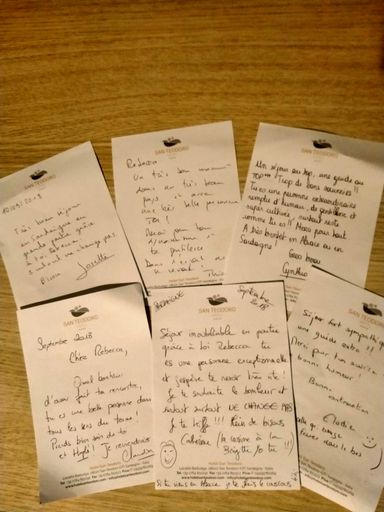 SAN TEODORO
10/09/2018
Très beau séjour
en Sardaigne en
grande partie grâce
à toi Rebecca.
Surtout ne change pas.
Bisous
Josette
SAN TEODORO
Rebecca
Un très bon moment
dans un très beau
pays et avec
une très belle personne
Toi !
Merci pour ton
et
ta gentillesse
Dans
SAN TEODORO
Un séjour au top, une guide au
TOP*** ! Trop de bons souvenirs !!
Tu es une personne extraordinaire
simple d'humour de gentillesse et
super cultivée, surtout reste
comme tu es !! Merci pour tout
A très bientôt en Alsace ou en
Sardaigne !
Gros bisous
Cynthia
SAN TEODORO
Septembre 2018
Chère Rebecca,
Quel bonheur
d'avoir fait ta rencontre,
tu es une belle personne dans
tous les sens du terme !
Prends bien soin de toi
et Hopla ! Je reviendrais
Claudia
Hotel San Teodoro
SARDAIGNE
Septembre
2018
SAN TEODORO
Séjour inoubliable en partie
grâce à toi Rebecca tu
es une personne exceptionnelle
et j'espère te revoir bien vite !
Je te souhaite le bonheur et
surtout surtout NE CHANGE PAS
Je te kiffe !!! Plein de bisous
Catherine (la cousine à la
Brigitte JO tu !!!)
Hotel San Teodoro
Si tu viens en Alsace je te ferais le couscous
SAN TEODORO
Séjour fort sympathique
une guide extra !!
Merci pour ton
ta bonne humeur !
Bonne
continuation
Elodie